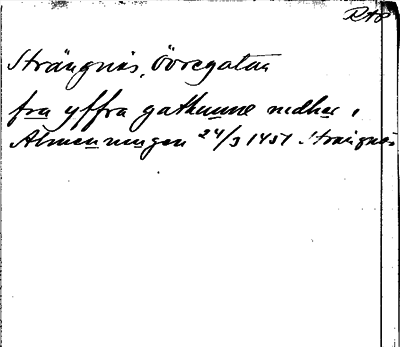 RAp
Strängnäs, Övregatan
fra yffra gathunne nedher i
Almenningen 24/3 1451 Strängnäs